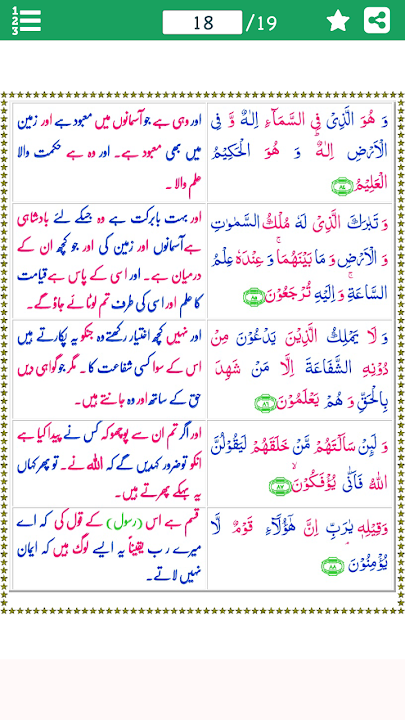 1
2
3
18 /19
وَ هُوَ الَّذِیْ فِی السَّمَآءِ اِلٰهٌ وَّ فِی
الْاَرْضِ اِلٰهٌ ؕ وَ هُوَ الْحَكِیْمُ
الْعَلِیْمُ ﴿۸۴﴾
اور وہی ہے جو آسمانوں میں معبود ہے اور زمین
میں بھی معبود ہے۔ اور وہ ہے حکمت والا
علم والا ۔
وَ تَبٰرَكَ الَّذِیْ لَهٗ مُلْكُ السَّمٰوٰتِ
وَ الْاَرْضِ وَ مَا بَیْنَهُمَا ۚ وَ عِنْدَهٗ عِلْمُ
السَّاعَةِ ۚ وَ اِلَیْهِ تُرْجَعُوْنَ ﴿۸۵﴾
اور بہت بابرکت ہے وہ جسکے لئے بادشاہی
ہے آسمانوں اور زمین کی اور جو کچھ ان کے
درمیان ہے۔ اور اسی کے پاس ہے قیامت
کا علم اور اسی کی طرف تم لوٹائے جاؤ گے۔
وَ لَا یَمْلِكُ الَّذِیْنَ یَدْعُوْنَ مِنْ
دُوْنِهِ الشَّفَاعَةَ اِلَّا مَنْ شَهِدَ
بِالْحَقِّ وَ هُمْ یَعْلَمُوْنَ ﴿۸۶﴾
اور نہیں کچھ اختیار رکھتے وہ جنکو یہ پکارتے ہیں
اس کے سوا کسی شفاعت کا ۔ مگر جو گواہی دیں
حق کے ساتھ اور وہ جانتے ہیں۔
وَ لَىِٕنْ سَاَلْتَهُمْ مَّنْ خَلَقَهُمْ لَیَقُوْلُنَّ
اللّٰهُ فَاَنّٰی یُؤْفَكُوْنَ ۙ﴿۸۷﴾
اور اگر تم ان سے پوچھو کہ کس نے پیدا کیا ہے
انکو تو ضرور کہدیں گے کہ اللہ نے۔ تو پھر کہاں
یہ بہکے پھرتے ہیں۔
وَ قِیْلِهٖ یٰرَبِّ اِنَّ هٰۤؤُلَآءِ قَوْمٌ لَّا
یُؤْمِنُوْنَ ۘ﴿۸۸﴾
قسم ہے اس (رسول) کے قول کی کہ اے
میرے رب یقیناً یہ ایسے لوگ ہیں کہ ایمان
نہیں لاتے۔